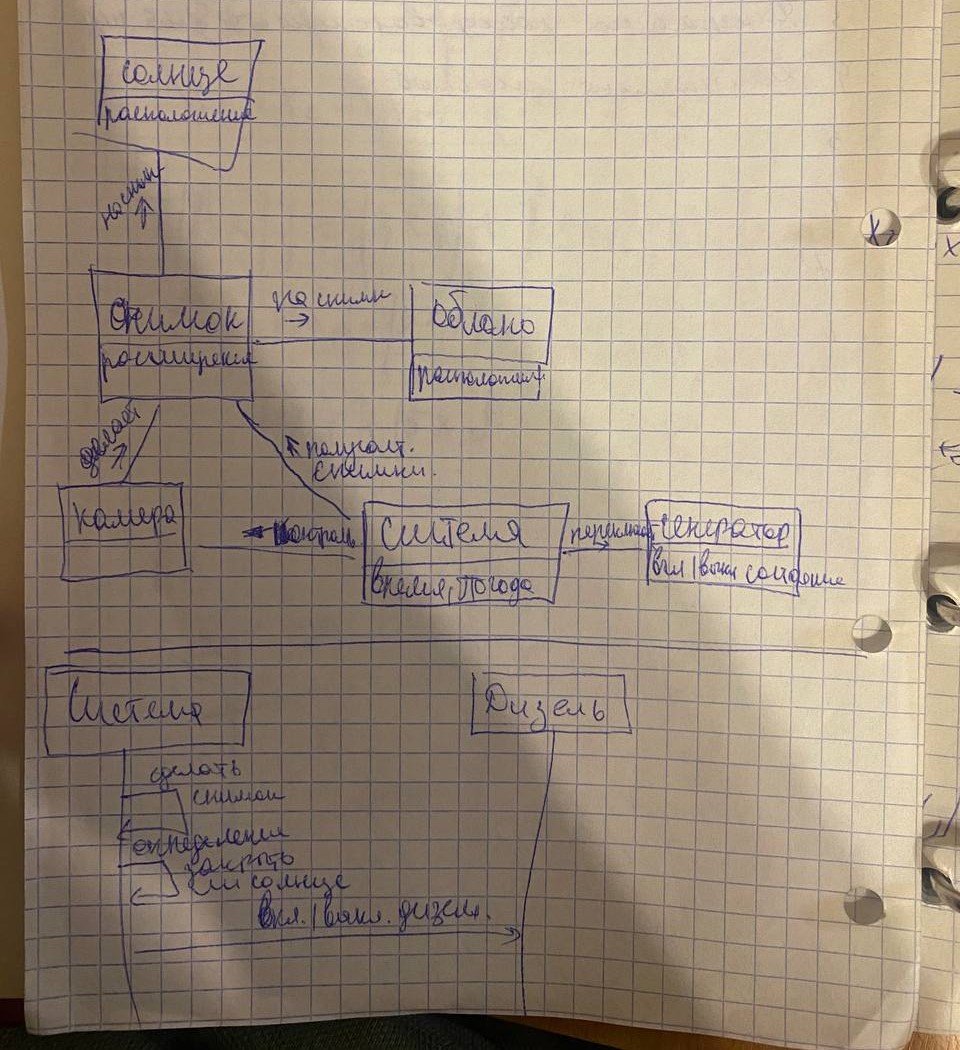 Солнце
расположение
на снимк
Снимок
расширения
на снимк
Облако
располож
делает
получает.
снимки.
Камера
контроль
Система
время, погода
переключ
Генератор
вкл / выкл состояние
Система
Дизель
сделать
снимок
определения
закрыто
ли солнце
вкл. / выкл. дизел.